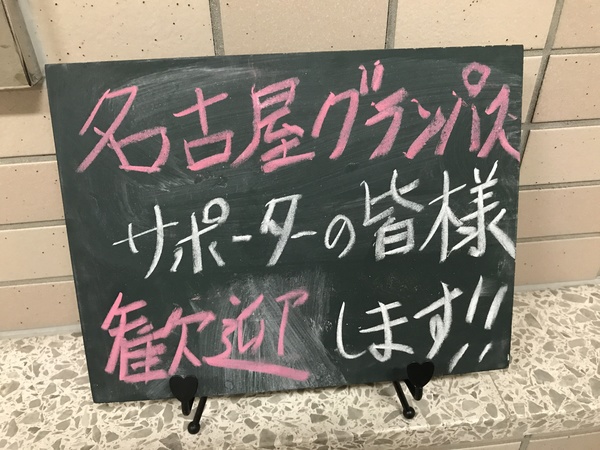 名古屋グランパス
サポーターの皆様
歓迎します!!